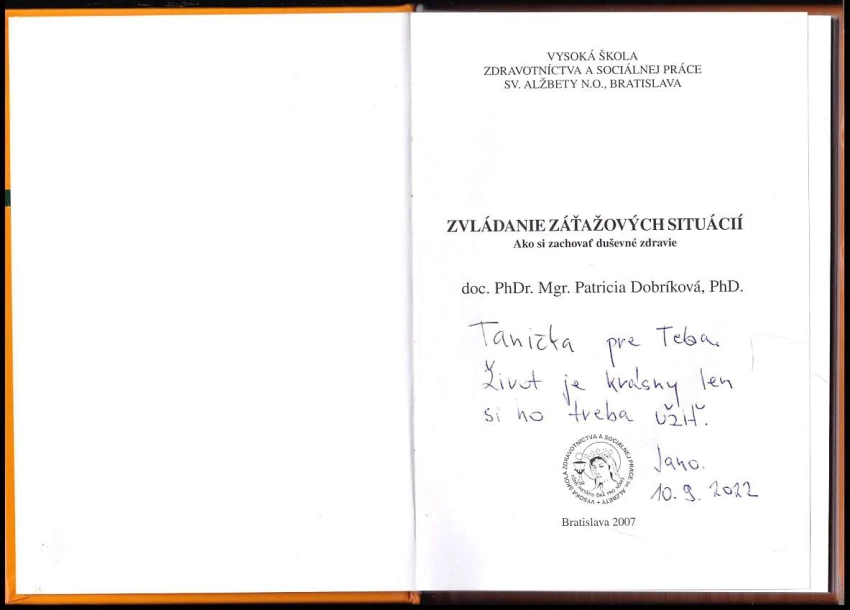 VYSOKÁ ŠKOLA
ZDRAVOTNÍCTVA A SOCIÁLNEJ PRÁCE
SV. ALŽBETY N.O., BRATISLAVA
ZVLÁDANIE ZÁŤAŽOVÝCH SITUÁCIÍ
Ako si zachovať duševné zdravie
doc. PhDr. Mgr. Patricia Dobríková, PhD.
Tanička pre Teba.
Život je krásny len
si ho treba užiť.
VYSOKÁ ŠKOLA ZDRAVOTNÍCTVA A SOCIÁLNEJ PRÁCE sv. ALŽBETY
Jano.
10.9.2022
Bratislava 2007